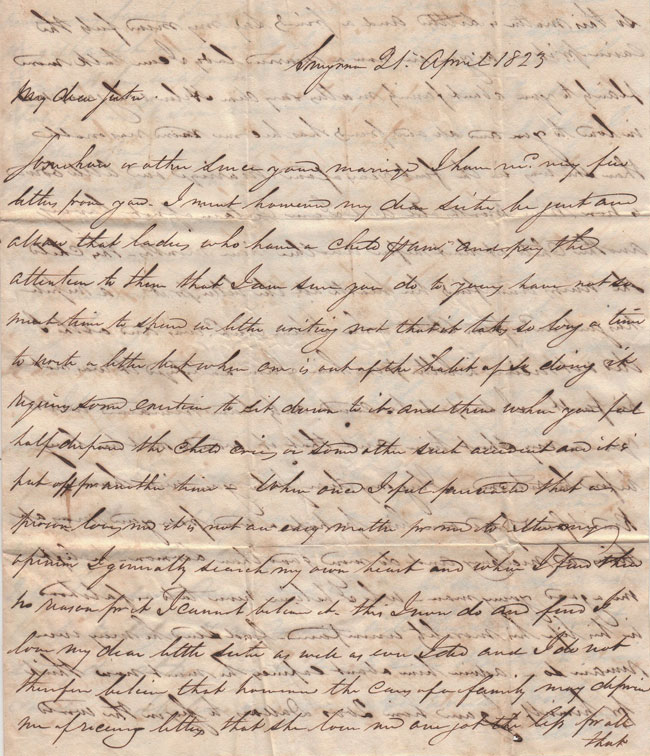 Smyrna 21st April 1823
My dear Sister.
Somehow or other since your marriage I have recd very few
letters from you. I must however my dear Sister be just and
allow that ladies who have a child & and pay the
attention to them that I am sure you do to yours have not so
much time to spend in letter writing not that it takes so long a time
to write a letter but when one is out of the habit of so doing it
requires some exertion to sit down to it, and then when you feel
half disposed the child cries or some other such accident and it is
put off for another time - When once I feel persuaded that a
person loves me it is not an easy matter for me to change my
opinion I generally search my own heart and when I find there
no reason for it I cannot believe it this I now do and find I
love my dear little sister as well as ever I did and I do not
therefore believe that however the cares of a family may deprive
me of receiving letters that she loves me one jot the less for all
that